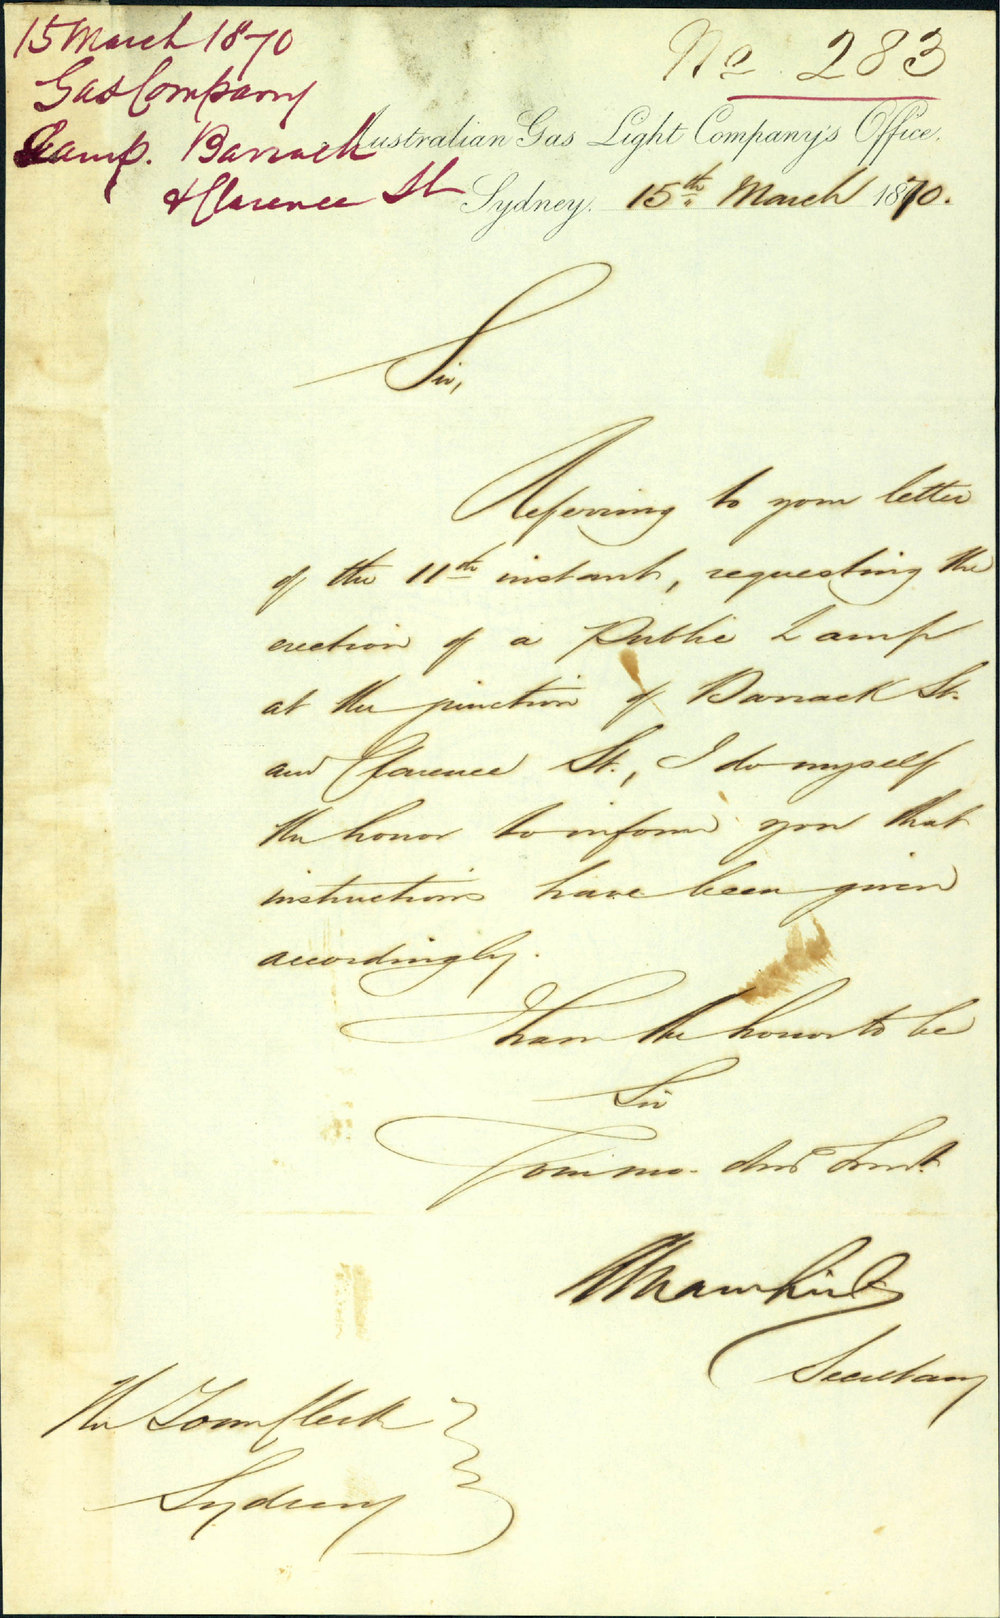 15 March 1870
Gas Company
Lamp. Barrack
& Clarence St
No 283
Australian Gas Light Company's Office.
Sydney. 15th March 1870.
Sir,
Referring to your letter
of the 11th instant, requesting the
erection of a Public Lamp
at the junction of Barrack St.
and Clarence St., I do myself
the honor to inform you that
instructions have been given
accordingly.
I have the honor to be
Sir
Your mo. obdt Servt.
Secretary
The Town Clerk
Sydney